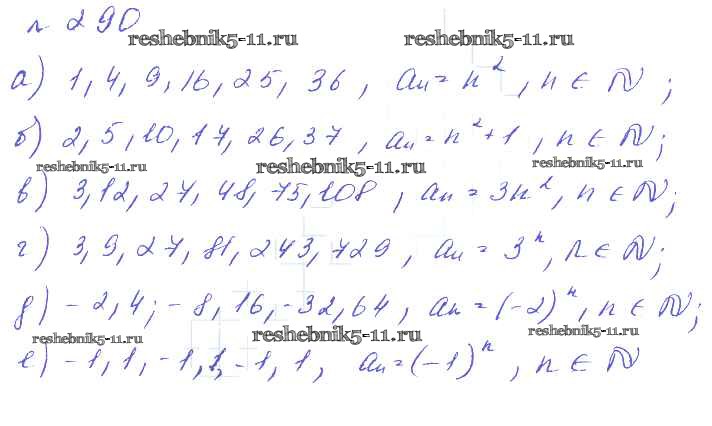 № 290
reshebnik5-11.ru reshebnik5-11.ru
а) 1, 4, 9, 16, 25, 36, aₙ = n², n ∈ N;
б) 2, 5, 10, 17, 26, 37, aₙ = n² + 1, n ∈ N;
reshebnik5-11.ru reshebnik5-11.ru reshebnik5-11.ru
в) 3, 12, 27, 48, 75, 108, aₙ = 3n², n ∈ N;
г) 3, 9, 27, 81, 243, 729, aₙ = 3ⁿ, n ∈ N;
д) -2, 4; -8, 16, -32, 64, aₙ = (-2)ⁿ, n ∈ N;
reshebnik5-11.ru reshebnik5-11.ru reshebnik5-11.ru
е) -1, 1, -1, 1, -1, 1, aₙ = (-1)ⁿ, n ∈ N